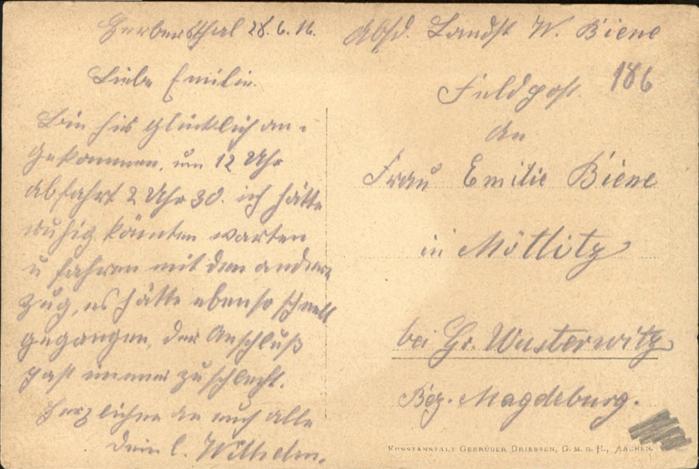 Herbersthal 28.6.16.
Liebe Emilie.
Bin hir glücklich an-
gekommen, um 12 Uhr
abfahrt 2 Uhr 30. ich hätte
ruhig könnten warten
u fahren mit dem andern
Zug, es hätte ebenso schnell
gegangen, der Anschluß
past immer zu schlecht.
Herzlichen an euch alle
Dein l. Wilhelm.
Absd. Landst W. Biene
Feldpost
186
An
Frau Emilie Biene
in Möttlitz
bei Gr. Wusterwitz
Bez. Magdeburg.
KUNSTANSTALT GEBRÜDER DRIESSEN, G. M. B. H., AACHEN.